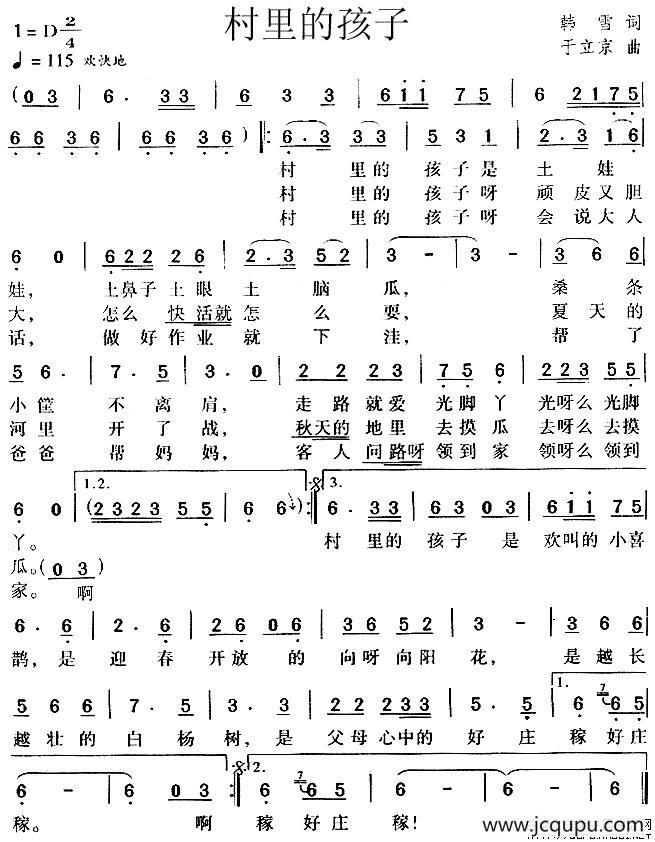 村里的孩子
1=D 2/4
♩=115 欢快地
韩雪 词
于立京 曲
(0 3 | 6. 3 3 | 6 3 3 | 6 1 1 7 5 | 6 2 1 7 5 |
6 6 3 6 | 6 6 3 6 6 6 3 6) ‖: 6. 3 3 3 | 5 3 1 | 2. 3 1 6 |
村 里的 孩子是 土 娃
村 里的 孩子呀 顽皮又胆
村 里的 孩子呀 会说大人
6 0 | 6 2 2 2 6 | 2. 3 5 2 | 3 - | 3 - | 3 6 6 |
娃, 土鼻子土眼土脑瓜, 桑条
大, 怎么快活就怎么耍, 夏天的
话, 做好作业就下洼, 帮了
5 6. | 7. 5 | 3. 0 | 2 2 2 3 | 7 5 6 | 2 2 3 5 5 |
小筐不离肩, 走路就爱光脚丫光呀么光脚
河里开了战, 秋天的地里去摸瓜去呀么去摸
爸爸帮妈妈, 客人问路呀领到家领呀么领到
1.2. 3.
6 0 | (2 3 2 3 5 5 | 6 6) :‖ 6. 3 3 | 6 3 0 3 | 6 1 1 7 5 |
丫。 村里的孩子是欢叫的小喜
瓜。(0 3)
家。 啊
6. 6 | 2. 6 | 2 6 0 6 | 3 6 5 2 | 3 - | 3 6 6 |
鹊,是迎春开放的向呀向阳花, 是越长
1.
5 6 6 | 7. 5 | 3. 3 | 2 2 2 3 3 | 5. 5 | 6 6 5 |
越壮的白杨树,是父母心中的好庄稼好庄
2.
6 - | 6 0 3 :‖ 6 6 5 | 6 - | 6 - | 6 0 ‖
稼。 啊稼好庄稼!
www.jcqupu.com